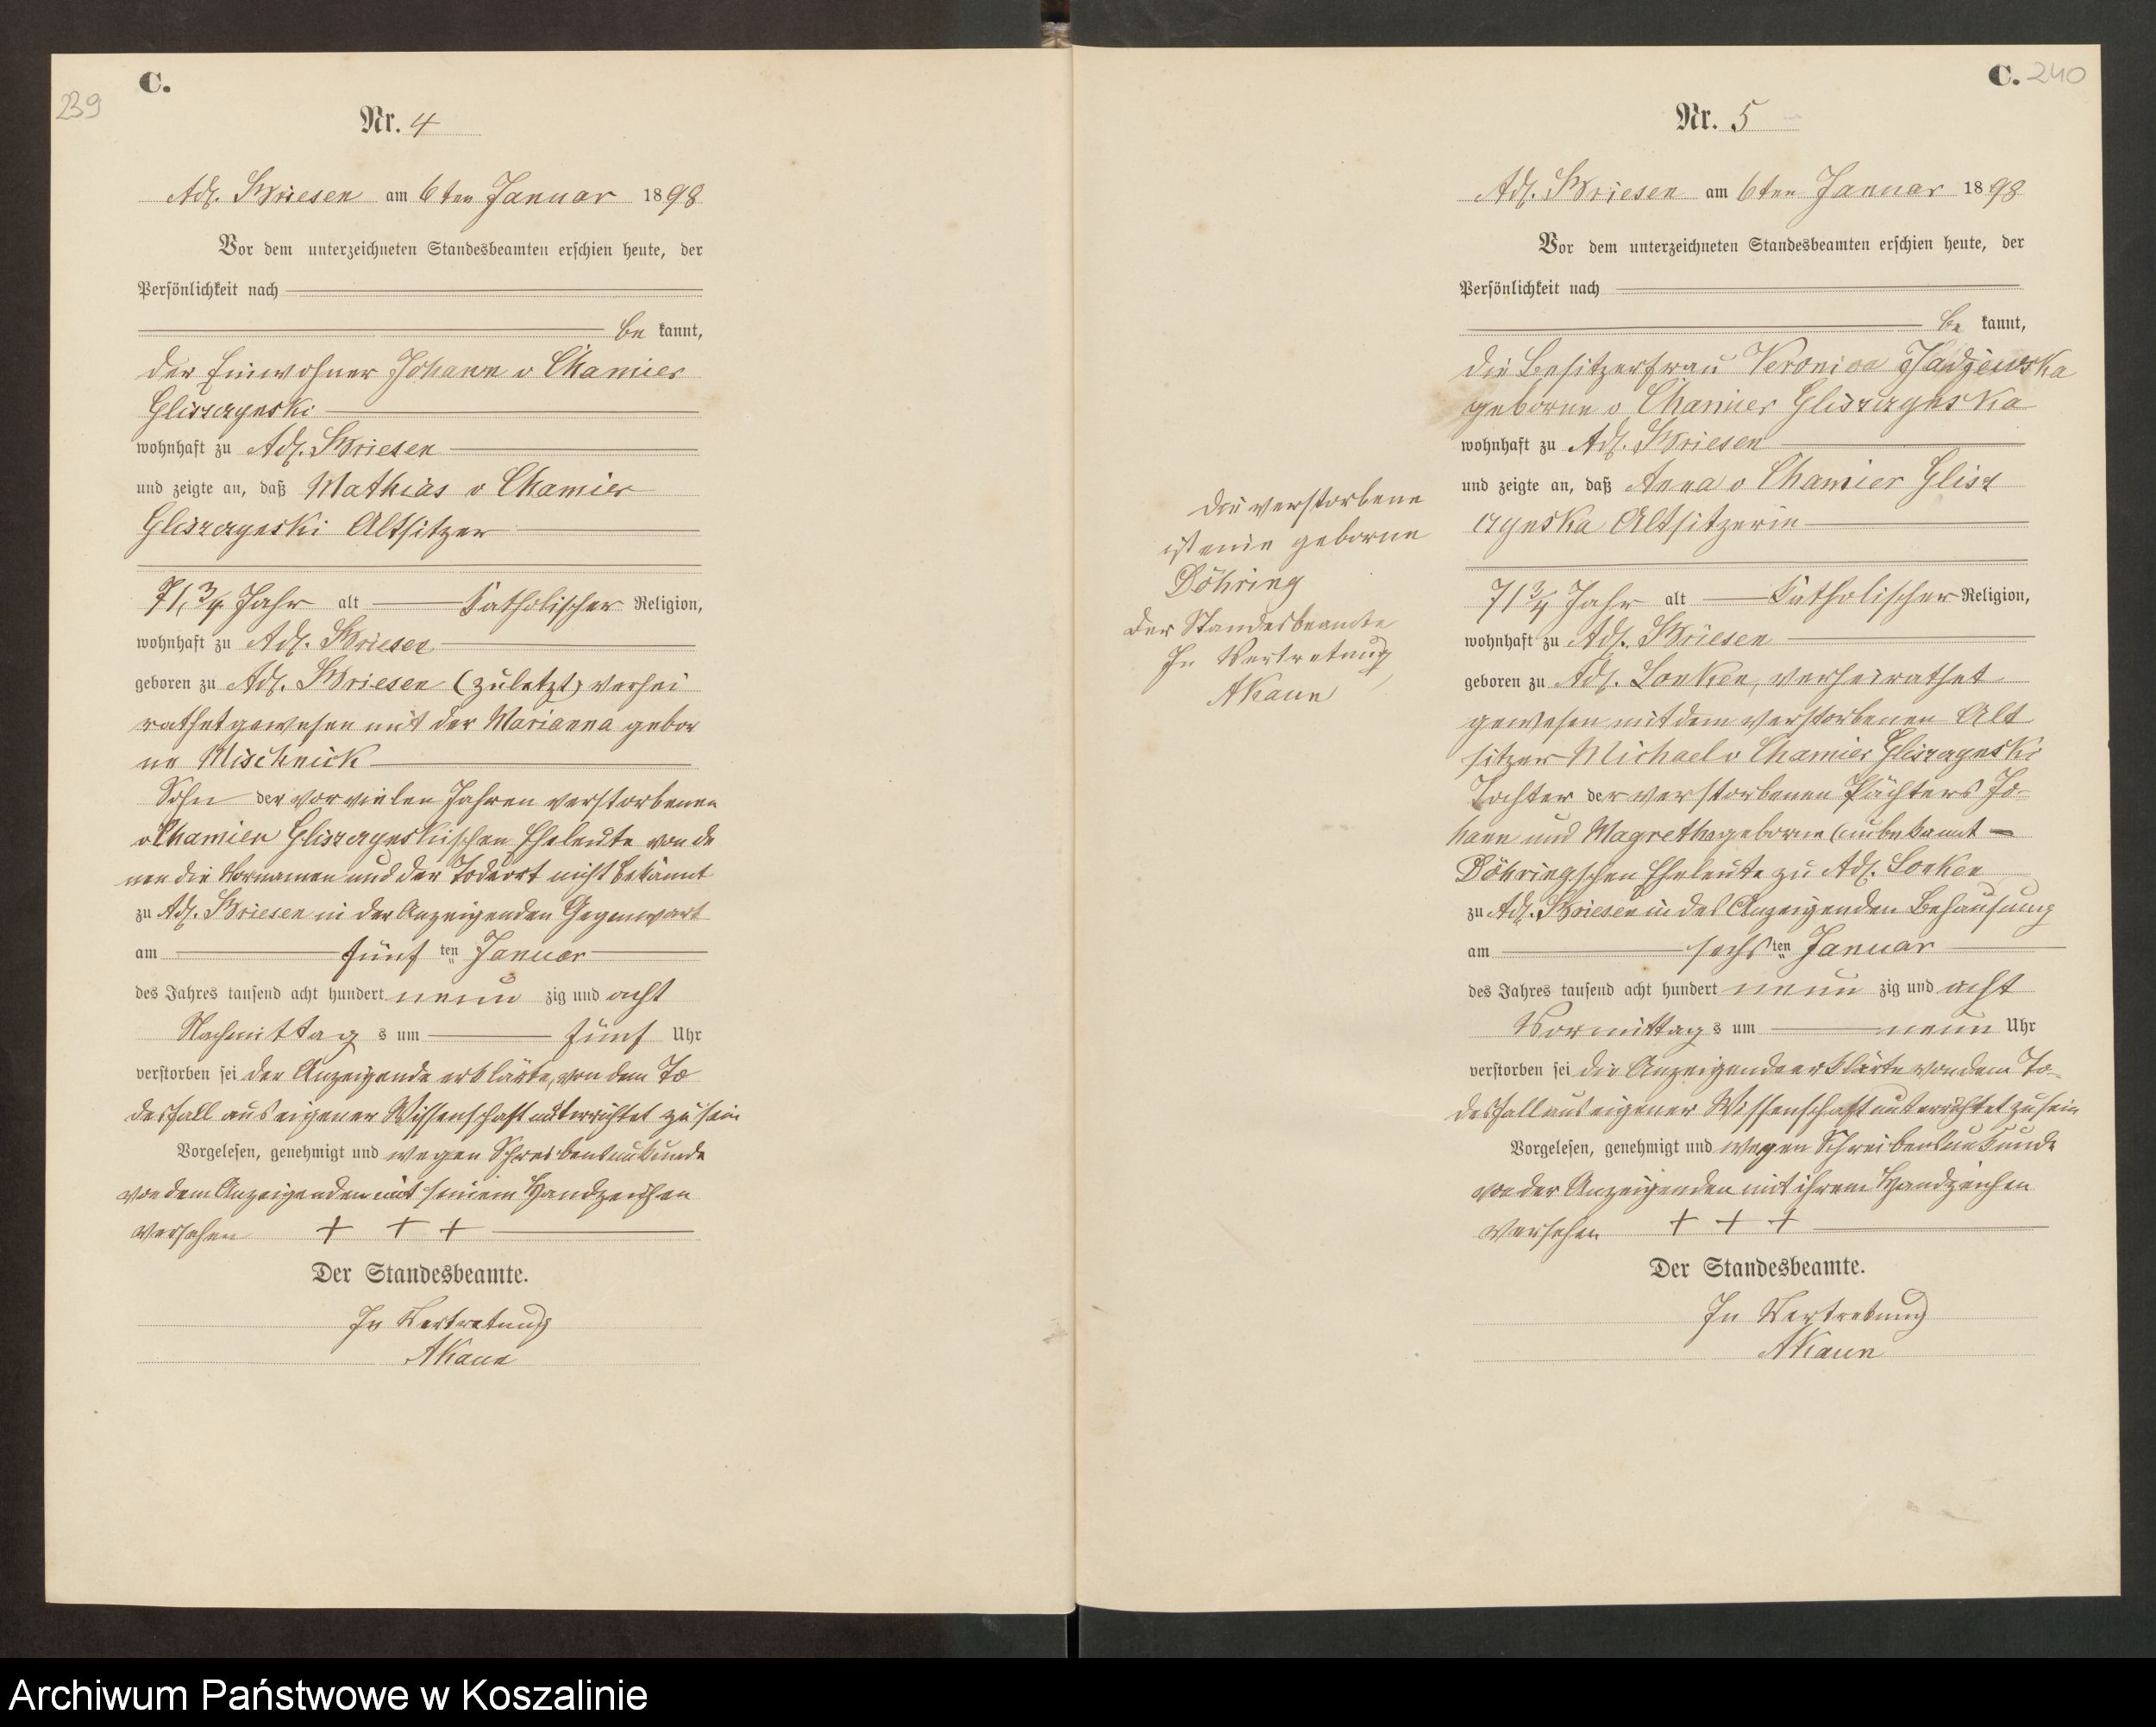 239
C.
Nr. 4
Adl. Briesen am 6ten Januar 1898
Vor dem unterzeichneten Standesbeamten erschien heute, der
Persönlichkeit nach
be kannt,
der Einwohner Johann v Chamier
Gliszczynski
wohnhaft zu Adl. Briesen
und zeigte an, daß Mathias v Chamier
Gliszczynski Altsitzer
71, 3/4 Jahr alt Katholischer Religion,
wohnhaft zu Adl. Briesen
geboren zu Adl. Briesen (zuletzt) verhei
rathet gewesen mit der Marianna gebor
ne Mischnick
Sohn der vor vielen Jahren verstorbenen
v Chamier Gliszczynskischen Eheleute von de
nen die Vornamen und der Todesort nicht bekannt
zu Adl. Briesen in des Anzeigenden Gegenwart
am fünf ten Januar
des Jahres tausend acht hundert neun zig und acht
Nachmittag s um fünf Uhr
verstorben sei der Anzeigende erklärte, von dem To
desfall aus eigener Wissenschaft unterrichtet zu sein
Vorgelesen, genehmigt und wegen Schreibensunkunde
von dem Anzeigenden mit seinem Handzeichen
versehen + + +
Der Standesbeamte.
In Vertretung
AKaun
C. 240
Nr. 5
Adl. Briesen am 6ten Januar 1898
Vor dem unterzeichneten Standesbeamten erschien heute, der
Persönlichkeit nach
be kannt,
die Besitzerfrau Veronica
geborne v Chamier Gliszczynska
wohnhaft zu Adl. Briesen
und zeigte an, daß Anna v Chamier Glisz
czynska Altsitzerin
71 3/4 Jahr alt Katholischer Religion,
wohnhaft zu Adl. Briesen
geboren zu Adl. Lonken, verheirathet
gewesen mit dem verstorbenen Alt
sitzer Michael v Chamier Gliszczynski
Tochter der verstorbenen Pächters Jo-
hann und Magretha geborne (unbekannt —
Döhringschen Eheleute zu Adl. Lonken
zu Adl. Briesen in des Anzeigenden Behausung
am sechs ten Januar
des Jahres tausend acht hundert neun zig und acht
Vormittag s um neun Uhr
verstorben sei die Anzeigende erklärte von dem To-
desfall aus eigener Wissenschaft unterrichtet zu sein
Vorgelesen, genehmigt und wegen Schreibensunkunde
von der Anzeigenden mit ihrem Handzeichen
versehen + + +
Der Standesbeamte.
In Vertretung
AKaun
Die verstorbene
ist eine geborne
Döhring
Der Standesbeamte
In Vertretung
AKaun
Archiwum Państwowe w Koszalinie